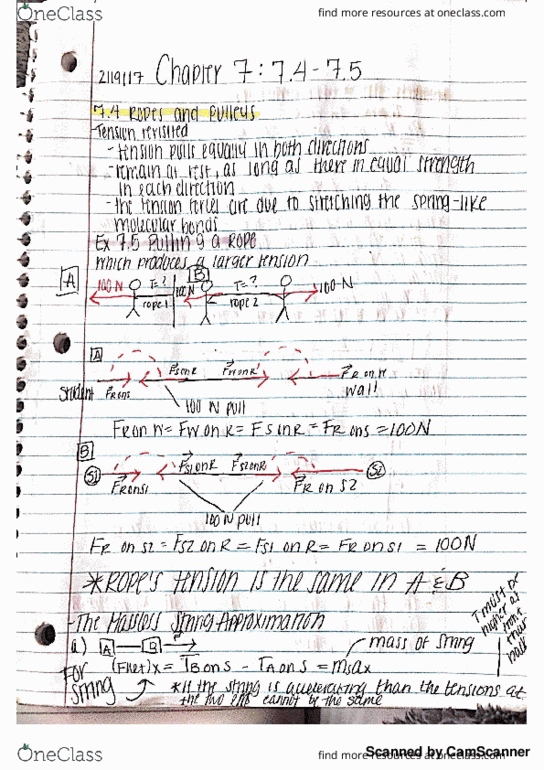 OneClass
find more resources at oneclass.com
2/19/17 Chapter 7: 7.4-7.5
7.4 Ropes and Pulleys
-Tension revisited
-tension pulls equally in both directions
-remain at rest, as long as there in equal strength
in each direction
-the tension forces are due to stretching the spring-like
molecular bonds
Ex 7.5 Pulling a Rope
which produces a larger tension
A B
100 N T=? 100 N T=? 100-N
rope 1 rope 2
A
FS on R FW on R FR on W
Student FR on S wall
100 N pull
FR on W = FW on R = FS on R = FR on S = 100N
B
S1 FS1 on R FS2 on R S2
FR on S1 FR on S2
100 N pull
FR on S2 = FS2 on R = FS1 on R = FR on S1 = 100N
*Rope's tension is the same in A & B
-The Massless String Approximation
a) A B mass of string
(Fnet)x = TB on S - TA on S = msax
For
string
*if the string is accelerating than the tensions at
the two ends cannot be the same
T must be
OneClass
find more resources at oneclass.com
Scanned by CamScanner